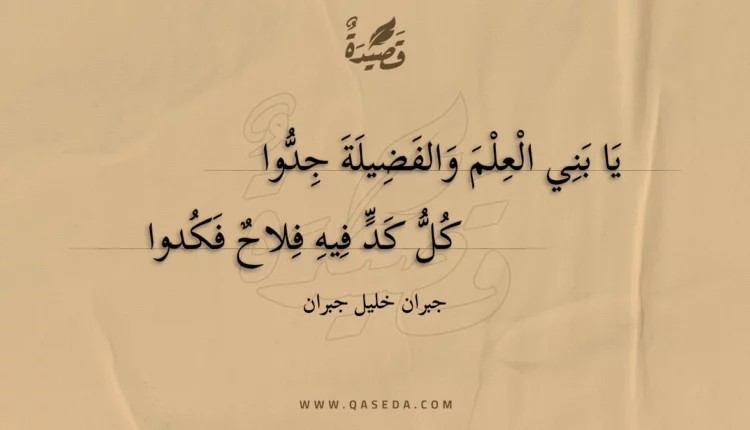 قَصِيْدَةٌ
يَا بَنِي الْعِلْمَ وَالفَضِيلَةَ جِدُّوا
كُلُّ كَدٍّ فِيهِ فِلاحٌ فَكُدوا
جبران خليل جبران
WWW.QASEDA.COM